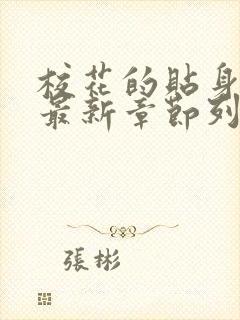 校花的貼身
最新章節列
張彬